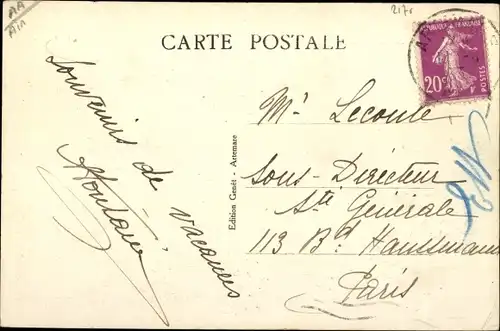 AA
AIA
217r
CARTE POSTALE
REPUBLIQUE FRANCAISE
20c
POSTES
Souvenirs de vacances
Edition Genêt - Artemare
Mr Lecoute
Sous-Directeur
Sté Générale
113 Bd Haussmann
Paris